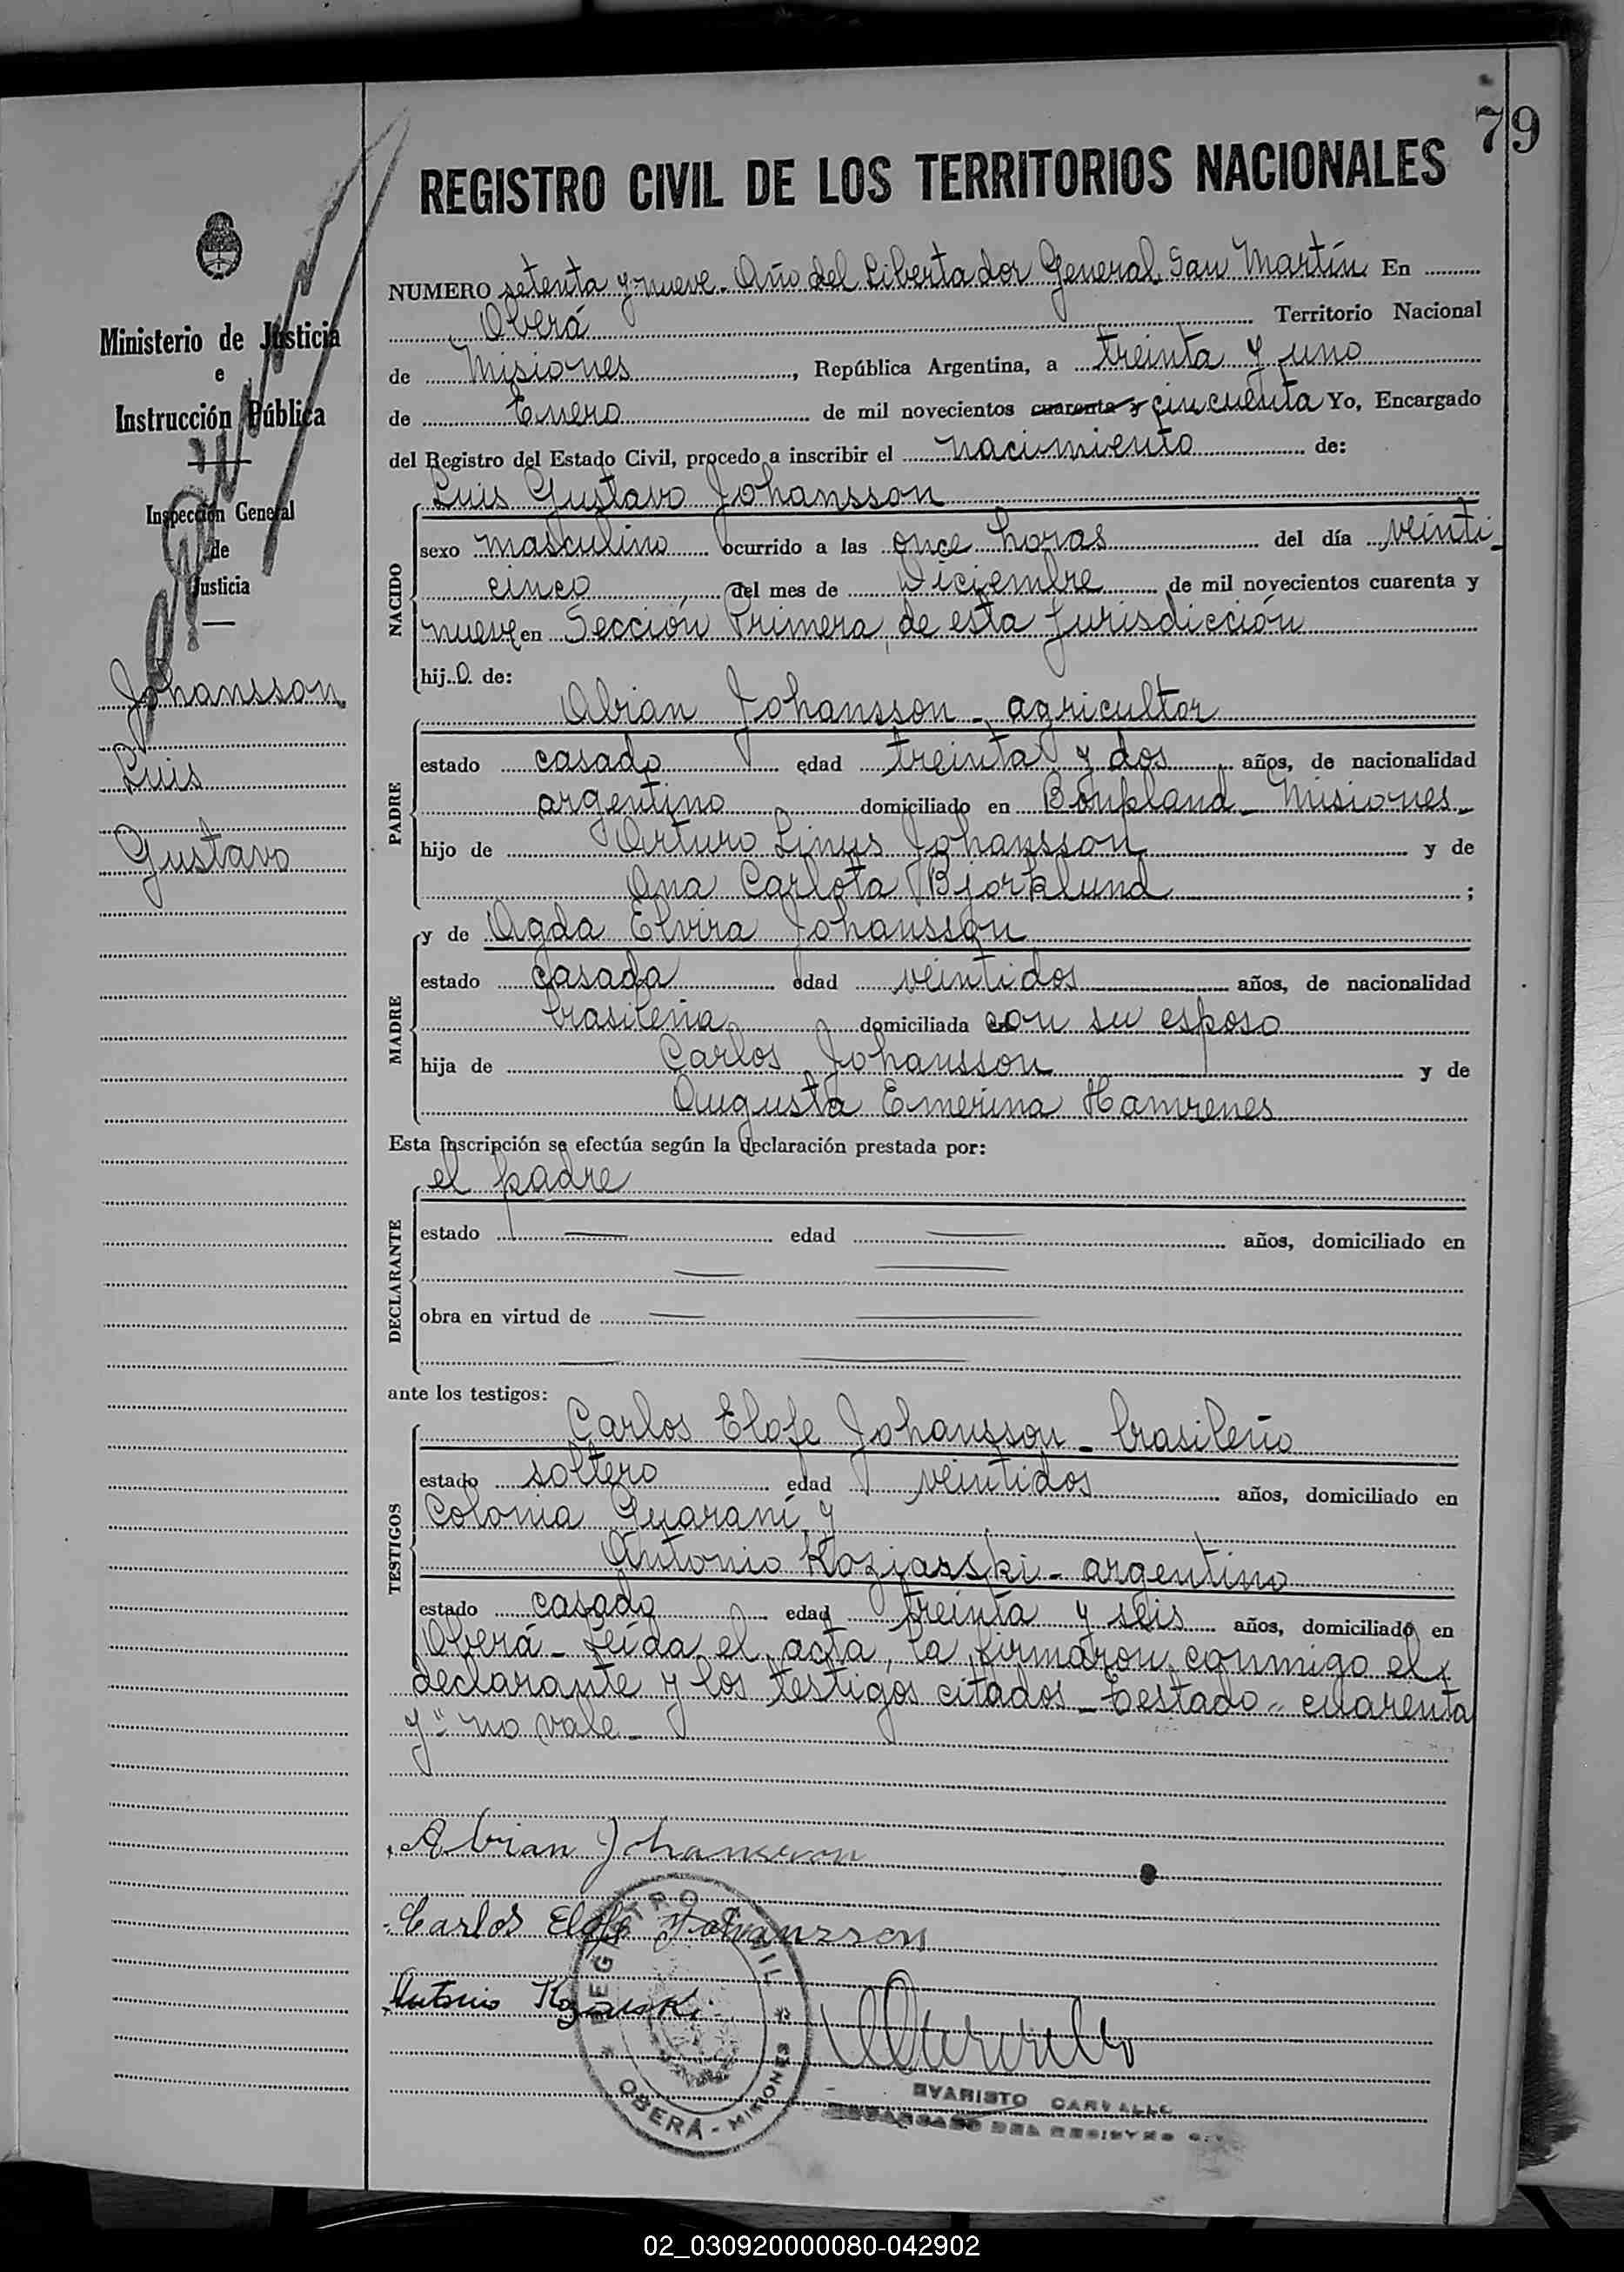 79
REGISTRO CIVIL DE LOS TERRITORIOS NACIONALES
Ministerio de Justicia
e
Instrucción Pública
Inspección General
de
Justicia
Johansson
Luis
Gustavo
NUMERO setenta y nueve - Año del Libertador General San Martín En
Oberá Territorio Nacional
de Misiones, República Argentina, a treinta y uno
de Enero de mil novecientos cuarenta y cincuenta Yo, Encargado
del Registro del Estado Civil, procedo a inscribir el nacimiento de:
Luis Gustavo Johansson
NACIDO
sexo masculino ocurrido a las once horas del día veinti-
cinco del mes de Diciembre de mil novecientos cuarenta y
nueve en Sección Primera, de esta jurisdicción
hijo de:
PADRE
Abian Johansson - agricultor
estado casado edad treinta y dos años, de nacionalidad
argentino domiciliado en Bonpland - Misiones -
hijo de Arturo Linus Johansson y de
Ana Carlota Bjorklund ;
MADRE
y de Agda Elvira Johansson
estado casada edad veintidos años, de nacionalidad
brasileña domiciliada con su esposo
hija de Carlos Johansson y de
Augusta Emerina Hamrenes
Esta inscripción se efectúa según la declaración prestada por:
DECLARANTE
el padre
estado edad años, domiciliado en
obra en virtud de
ante los testigos:
TESTIGOS
Carlos Elofe Johansson - brasileño
estado soltero edad veintidos años, domiciliado en
Colonia Guaraní y
Antonio Koziarski - argentino
estado casado edad treinta y seis años, domiciliado en
Oberá - Leída el acta, la firmaron conmigo el
declarante y los testigos citados - Testado "cuarenta
y" no vale -
Abrian Johansson
Carlos Elofe Johansson
Antonio Koziarski
REGISTRO CIVIL
OBERÁ - MISIONES
EVARISTO CARVALLO
ENCARGADO DEL REGISTRO
02_030920000080-042902